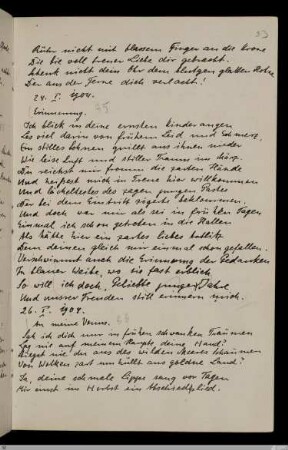 53
Rühr nicht mit blassem Finger an der Krone
Die dir voll treuer Liebe dir gebracht.
Schenk nicht dein Ohr dem blutgen glatten Hohne
Der aus der Ferne dich verlacht!
24. I. 1904.
Erinnerung.
Ich blick in deine ernsten Kinderaugen
Les viel darin von frühem Leid und Schmerz,
Ein stilles quillt aus ihnen nieder
Wie leise Luft und stiller Traum im März.
Du reichst nur fromm die zarten Hände
Und heissest mich in Ferne hier willkommen
Und des jungen
Der bei dem Eintritt beklommen.
Und doch war mir als sei in frühen Tagen
Einmal ich schon getreten in die Hallen
Als hätte hier ein zartes liebes Antlitz
Dem deinen gleich mir einmal schon gefallen.
Verschwimmt auch die Erinnerung der Gedanken
In blauer Weite, wo sie fast erblich
So will ich doch, Geliebte junger Jahre
Und unsrer Freuden still erinnern mich.
26. I. 1904.
An meine Venus.
Sah ich dich nur in frühen schwanken Träumen
Lag nie auf meinem Haupte deine Hand?
nie du aus des wilden Meeres Schäumen
Von Wolken zart umhüllt ans goldne Land?
Ja, deine schmale Lippe sang vor Tagen
Mir einst im Herbst ein Abschiedslied.